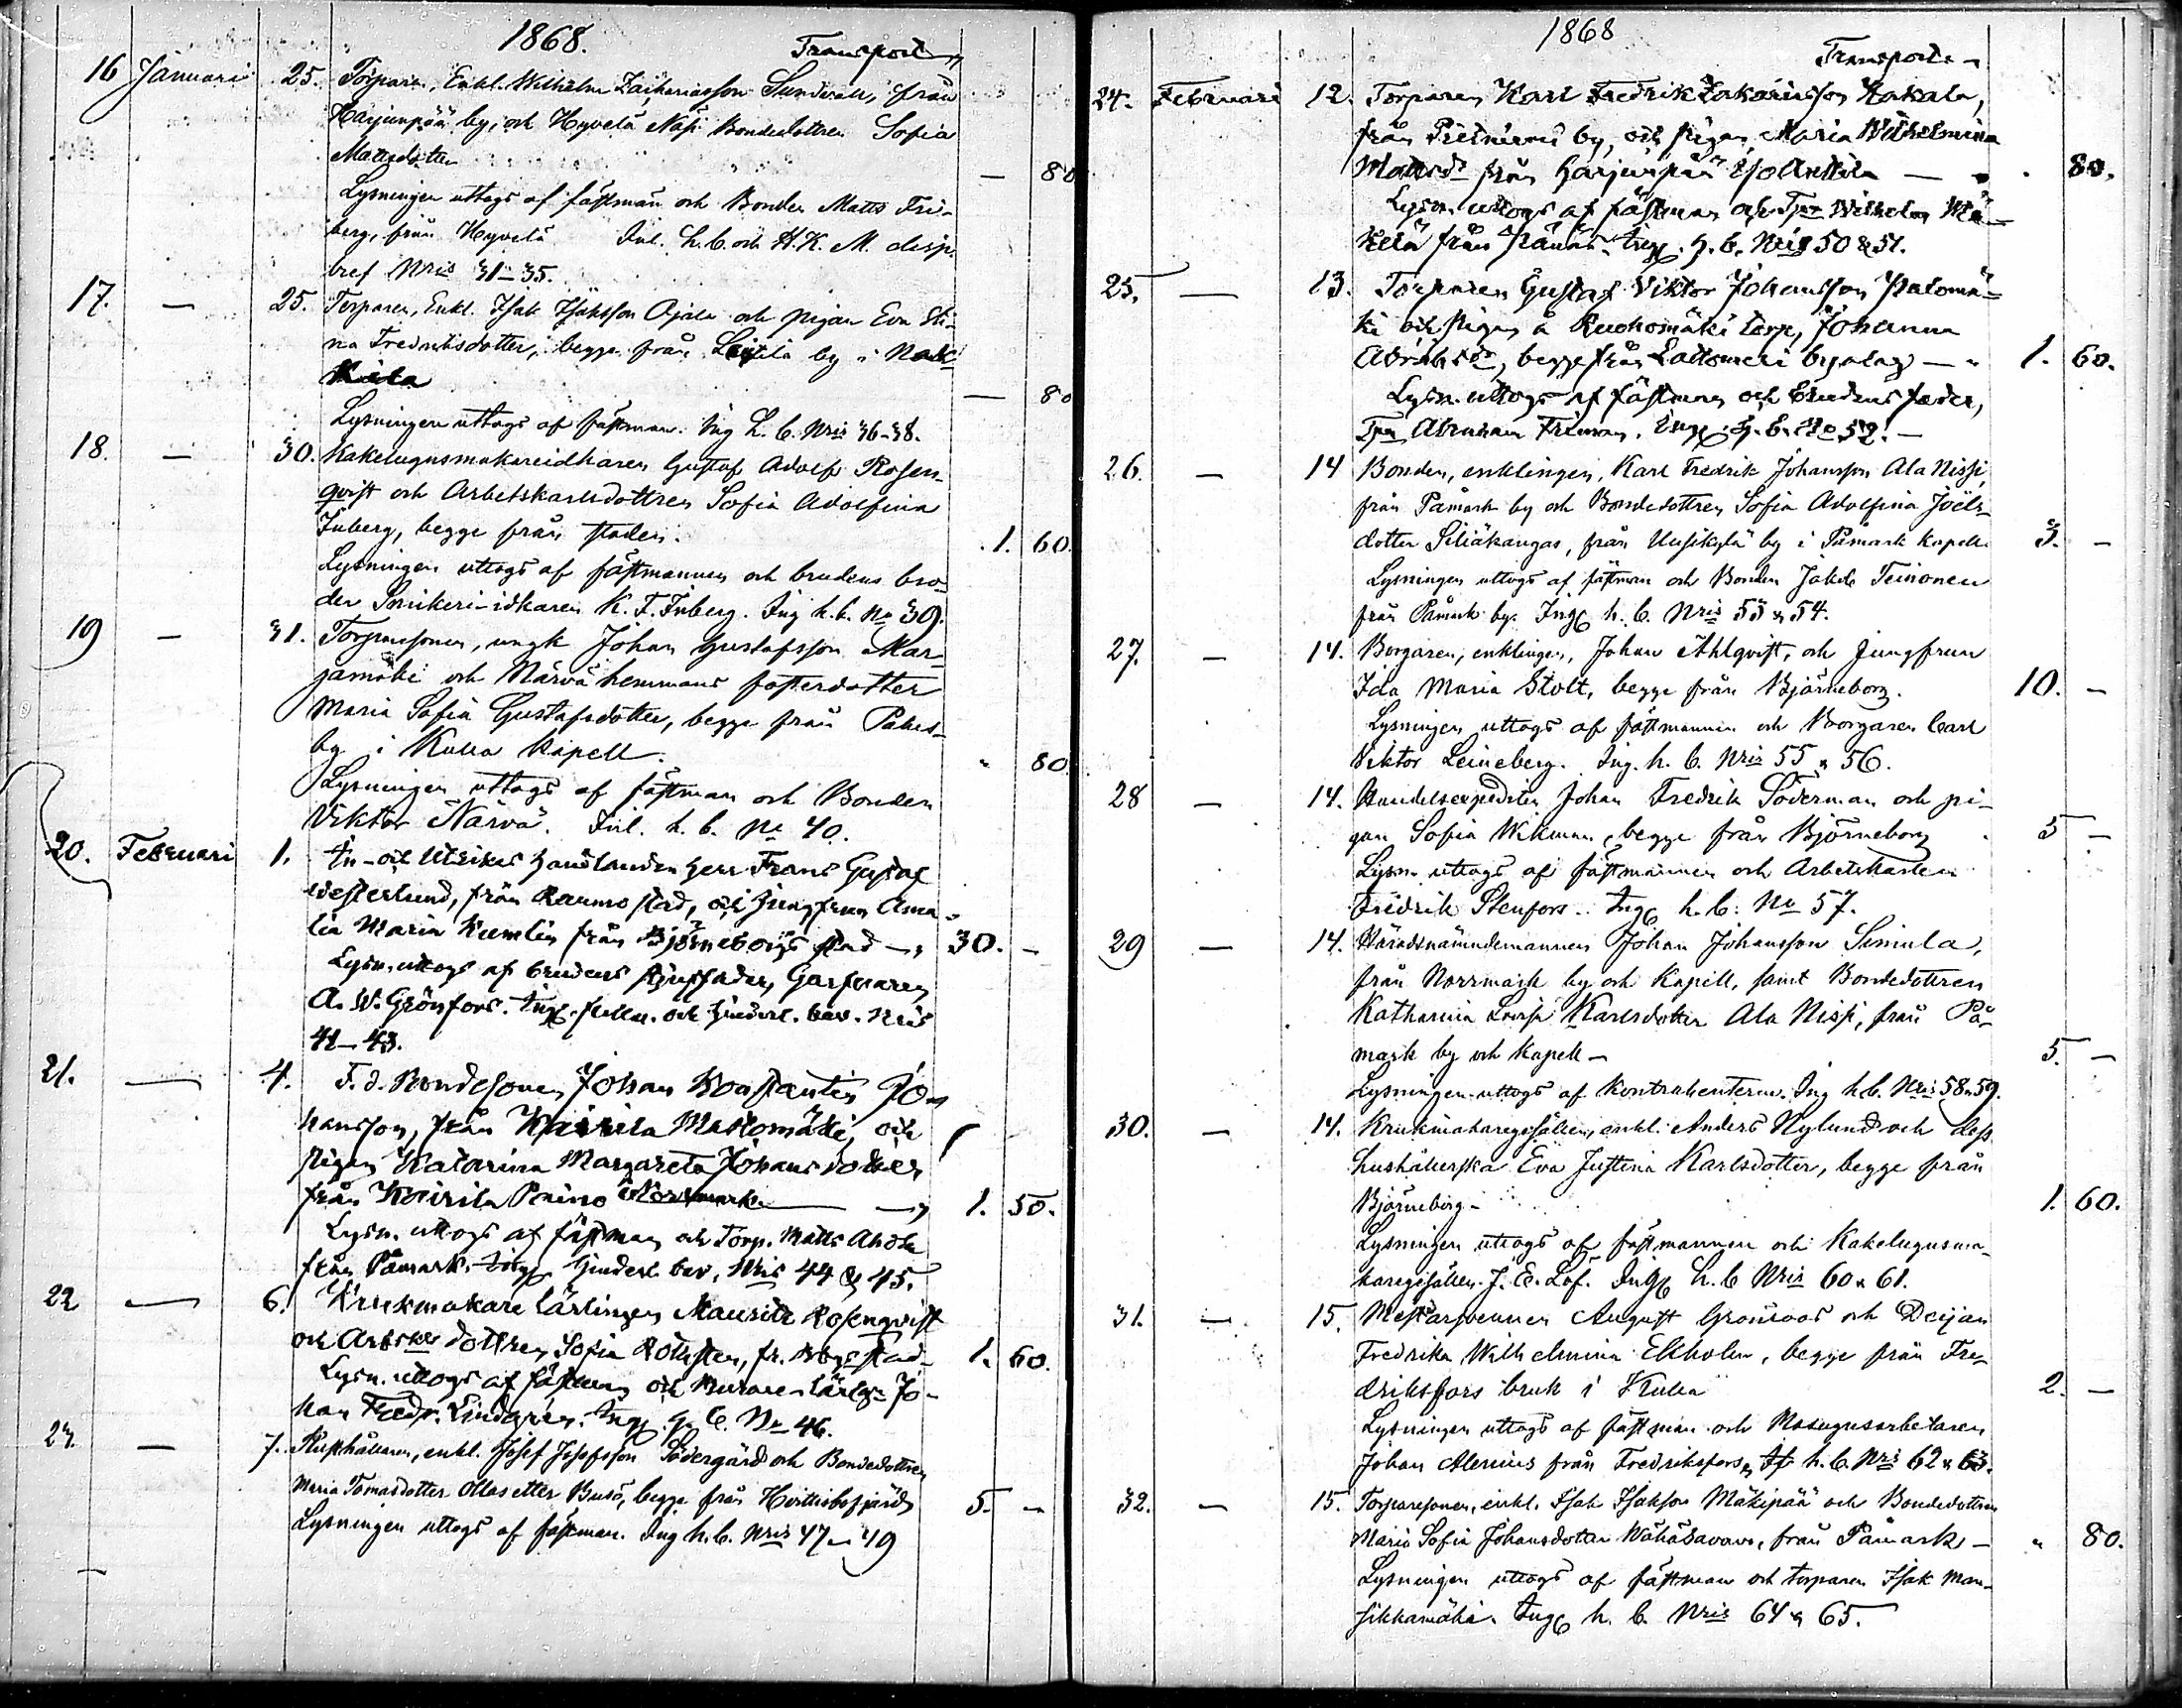 1868.
Transport
16 Januari 25. Torparen, Enkl. Wilhelm Zachariasson Sundvall, från
Harjunpää by, och Hyvelä Näsi Bondedottren Sofia
Mattsdotter — 80
Lysningen uttogs af fästman och Bonden Matts Fri-
berg, från Hyvelä Inl. h. b. och H. K. M. disp.
bref Nris 31–35.
17. — 25. Torparen, Enkl. Isak Isaksson Ojala och pigan Eva Sti-
na Fredriksdotter, begge från by i Nak-
kila — 80
Lysningen uttogs af fästman. Ing h. b. Nris 36–38.
18. — 30. Kakelugnsmakareidkaren Gustaf Adolf Rosen-
qvist och Arbetskarlsdottren Sofia Adolfina
Inberg, begge från staden. 1. 60.
Lysningen uttogs af fästmannen och brudens bro-
der Snikeri-idkaren K. F. Inberg. Ing h. b. No 39.
19 — 31. Torparesonen, ungk Johan Gustafsson Mar-
jamäki och Närvä hemmans fosterdotter
Maria Sofia Gustafsdotter, begge från
by i Kulla Kapell. " 80.
Lysningen uttogs af fästman och Bonden
Viktor Närvä. Inl. h. b. No 40.
20. Februari 1. In- och Utrikes handlanden Herr Frans Gustaf
Westerlund, från Raumo stad, och Jungfrun Ama-
lia Maria Kumlin från Björneborgs stad — 30. –
Lysn. uttogs af brudens stjuffader, Garfvaren
A. W. Grönfors. Ing. och hinderl. bev. Nris
41–43.
21. — 4. F. d. Bondesonen Johan Konstantin Jo-
hansson, från Kairila Mattomäki, och
pigan Katarina Margareta Johansdotter
från Kairila Norrmark — 1. 50.
Lysn. uttogs af fästman och Torp. Matts
från Påmark. Ing. hinderl. bev. Nris 44 & 45.
22 — 6. Krukmakare lärlingen Mauritz Rosenqvist
och Arbskls dottren Sofia fr. Bbgs stad – 1. 60.
Lysn. uttogs af fästman och Murare-lärlgn Jo-
han Fredr. Lindgren. Ing. h. b. No 46.
23. — 7. enkl. Josef Josefsson Södergård och Bondedottren
Maria Tomasdotter Ollas etter Buså, begge från Hvittisbofjärd 5. –
Lysningen uttogs af fästman. Ing h. b. Nris 47–49
1868
Transport –
24. Februari 12. Torparen Karl Fredrik Zakariasson Kakala,
från by, och pigan Maria Wilhelmina
Mattsdr från Harjunpää — 80.
Lysn. uttogs af fästman och Tpn Wilhelm Mä-
kelä från Ing. h. b. Nris 50 & 51.
25. — 13. Torparen Gustaf Viktor Johansson Palomä-
ki och Pigan å Ruohomäki torp, Johanna
Abrahsdr, begge från Lattomeri byalag — 1. 60.
Lysn. uttogs af fästman och brudens fader,
Tpn Abraham Friman. Ing. h. b. No 52. –
26. — 14 Bonden, enklingen, Karl Fredrik Johansson Ala Nissi,
från Påmark by och Bondedottren Sofia Adolfina Joëls-
dotter Siliäkangas, från Uusikylä by i Påmark kapell 3. –
Lysningen uttogs af fästman och Bonden Jakob Teinonen
från Påmark by. Ing h. b. Nris 53 & 54.
27. — 14. Borgaren, enklingen, Johan Ahlqvist, och jungfrun
Ida Maria Stolt, begge från Björneborg. 10. –
Lysningen uttogs af fästmannen och Borgaren Carl
Viktor Leineberg. Ing. h. b. Nris 55 & 56.
28 — 14. Handelsexpediten Johan Fredrik Söderman och pi-
gan Sofia Wikman, begge från Björneborg 5 –
Lysn. uttogs af fästmannen och Arbetskarlen
Fredrik Stenfors. Ing h. b. No 57.
29 — 14. Häradsnämndemannen Johan Johansson Simula,
från Norrmark by och Kapell, samt Bondedottren
Katharina Lovisa Karlsdotter Ala Nissi, från På-
mark by och kapell – 5. –
Lysningen uttogs af kontrahenterna. Ing h. b. Nris 58 & 59.
30. — 14. Krukmakaregesällen, enkl. Anders Nylund och dess
hushållerska Eva Justina Karlsdotter, begge från
Björneborg – 1. 60.
Lysningen uttogs af fästmannen och Kakelugnsma-
karegesällen J. E. Löf. Ing h. b Nris 60 & 61.
31. — 15. Mästarsvennen August Granroos och Deijan
Fredrika Wilhelmina Ekholm, begge från Fre-
driksfors bruk i Kulla 2. –
Lysningen uttogs af fästman och Masugnsarbetaren
Johan Alenius från Fredriksfors, h. b. Nris 62 & 63.
32. — 15. Torparesonen, enkl. Isak Isaksson Mäkipää och Bondedottren
Maria Sofia Johansdotter Wähäsavavo, från Påmark – " 80.
Lysningen uttogs af fästman och torparen Isak Man-
sikkamäki. Ing h. b. Nris 64 & 65.